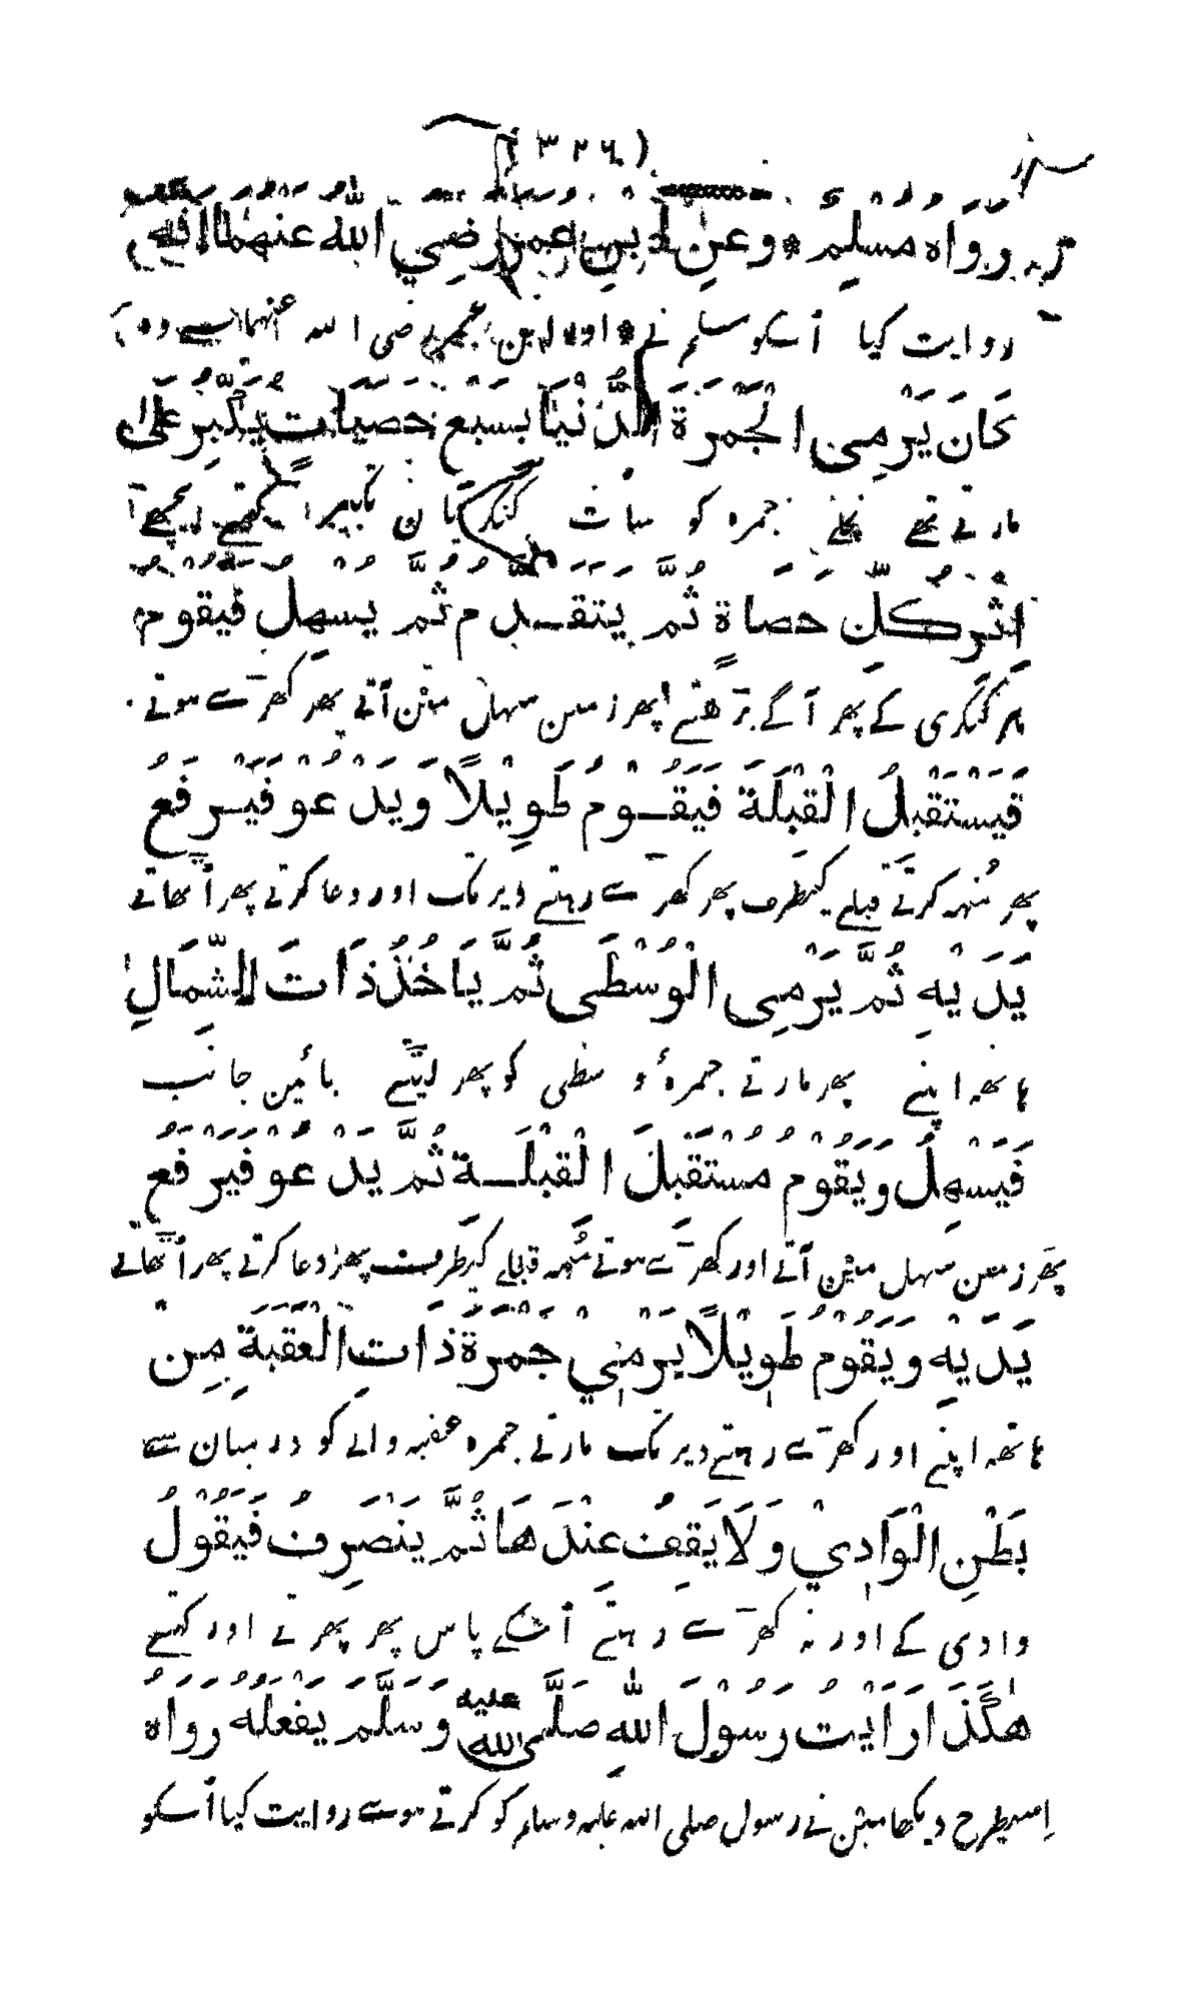 (٣٢٦)
رَوَاهُ مُسْلِمٌ * وَعَنِ ابْنِ عُمَرَ رَضِيَ اللهُ عَنْهُمَا اَنَّهُ
روایت کیا اُسکو مسلم نے * اور ابن عمر رضی اللہ عنہما سے وہ
كَانَ يَرْمِي الْجَمْرَةَ الدُّنْيَا بِسَبْعِ حَصَيَاتٍ يُكَبِّرُ عَلَى
مارتے تھے نچلے جمرہ کو سات کنکریان تکبیر کہتے پیچھے
اِثْرِ كُلِّ حَصَاةٍ ثُمَّ يَتَقَدَّمُ ثُمَّ يُسْهِلُ فَيَقُومُ
ہر کنکری کے پھر آگے بڑھتے پھر زمین سہل مین آتے پھر کھڑے ہوتے
فَيَسْتَقْبِلُ الْقِبْلَةَ فَيَقُومُ طَوِيْلًا وَيَدْعُو فَيَرْفَعُ
پھر مُنہہ کرتے قبلے کیطرف پھر کھڑے رہتے دیر تک اور دعا کرتے پھر اُٹھاتے
يَدَيْهِ ثُمَّ يَرْمِي الْوُسْطَى ثُمَّ يَاخُذُ ذَاتَ الشِّمَالِ
ہاتھہ اپنے پھر مارتے جمرۂ وسطی کو پھر لیتے بائین جانب
فَيُسْهِلُ وَيَقُوْمُ مُسْتَقْبِلَ الْقِبْلَةِ ثُمَّ يَدْعُوْ فَيَرْفَعُ
پھر زمین سہل مین آتے اور کھڑے ہوتے مُنہہ قبلے کیطرف پھر دعا کرتے پھر اُٹھاتے
يَدَيْهِ وَيَقُوْمُ طَوِيْلًا يَرْمِيْ جَمْرَةَ ذَاتِ الْعَقَبَةِ مِنْ
ہاتھہ اپنے اور کھڑے رہتے دیر تک مارتے جمرہ عقبہ والے کو درمیان سے
بَطْنِ الْوَادِيْ وَلَا يَقِفُ عِنْدَهَا ثُمَّ يَنْصَرِفُ فَيَقُوْلُ
وادی کے اور نہ کھڑے رہتے اُسکے پاس پھر پھرتے اور کہتے
هٰكَذَا رَاَيْتُ رَسُوْلَ اللهِ صَلَّى اللهُ عَلَيْهِ وَسَلَّمَ يَفْعَلُهُ رَوَاهُ
اِسیطرح دیکھا مین نے رسول صلی اللہ علیہ وسلم کو کرتے ہوے روایت کیا اُسکو